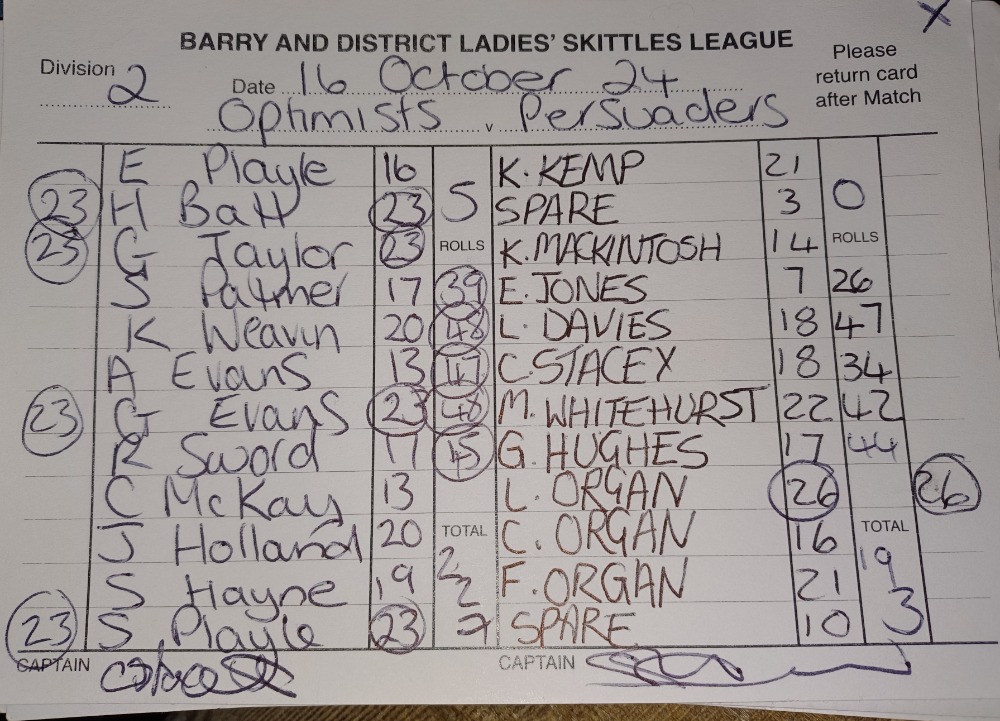 X
BARRY AND DISTRICT LADIES' SKITTLES LEAGUE
Please return card after Match
Division 2 Date 16 October 24
Optimists v Persuaders
E Playle 16 K. KEMP 21
23 H Batt 23 5 SPARE 3 0
23 G Taylor 23 ROLLS K. MACKINTOSH 14 ROLLS
S Palmer 17 39 E. JONES 7 26
K Weavin 20 48 L. DAVIES 18 47
A Evans 13 47 C. STACEY 18 34
23 G Evans 23 48 M. WHITEHURST 22 42
R Sword 17 45 G. HUGHES 17 44
C McKay 13 L. ORGAN 26 26
J Holland 20 TOTAL C. ORGAN 16 TOTAL
S Hayne 19 22 F. ORGAN 21 19
23 S. Playle 23 7 SPARE 10 3
CAPTAIN CAPTAIN